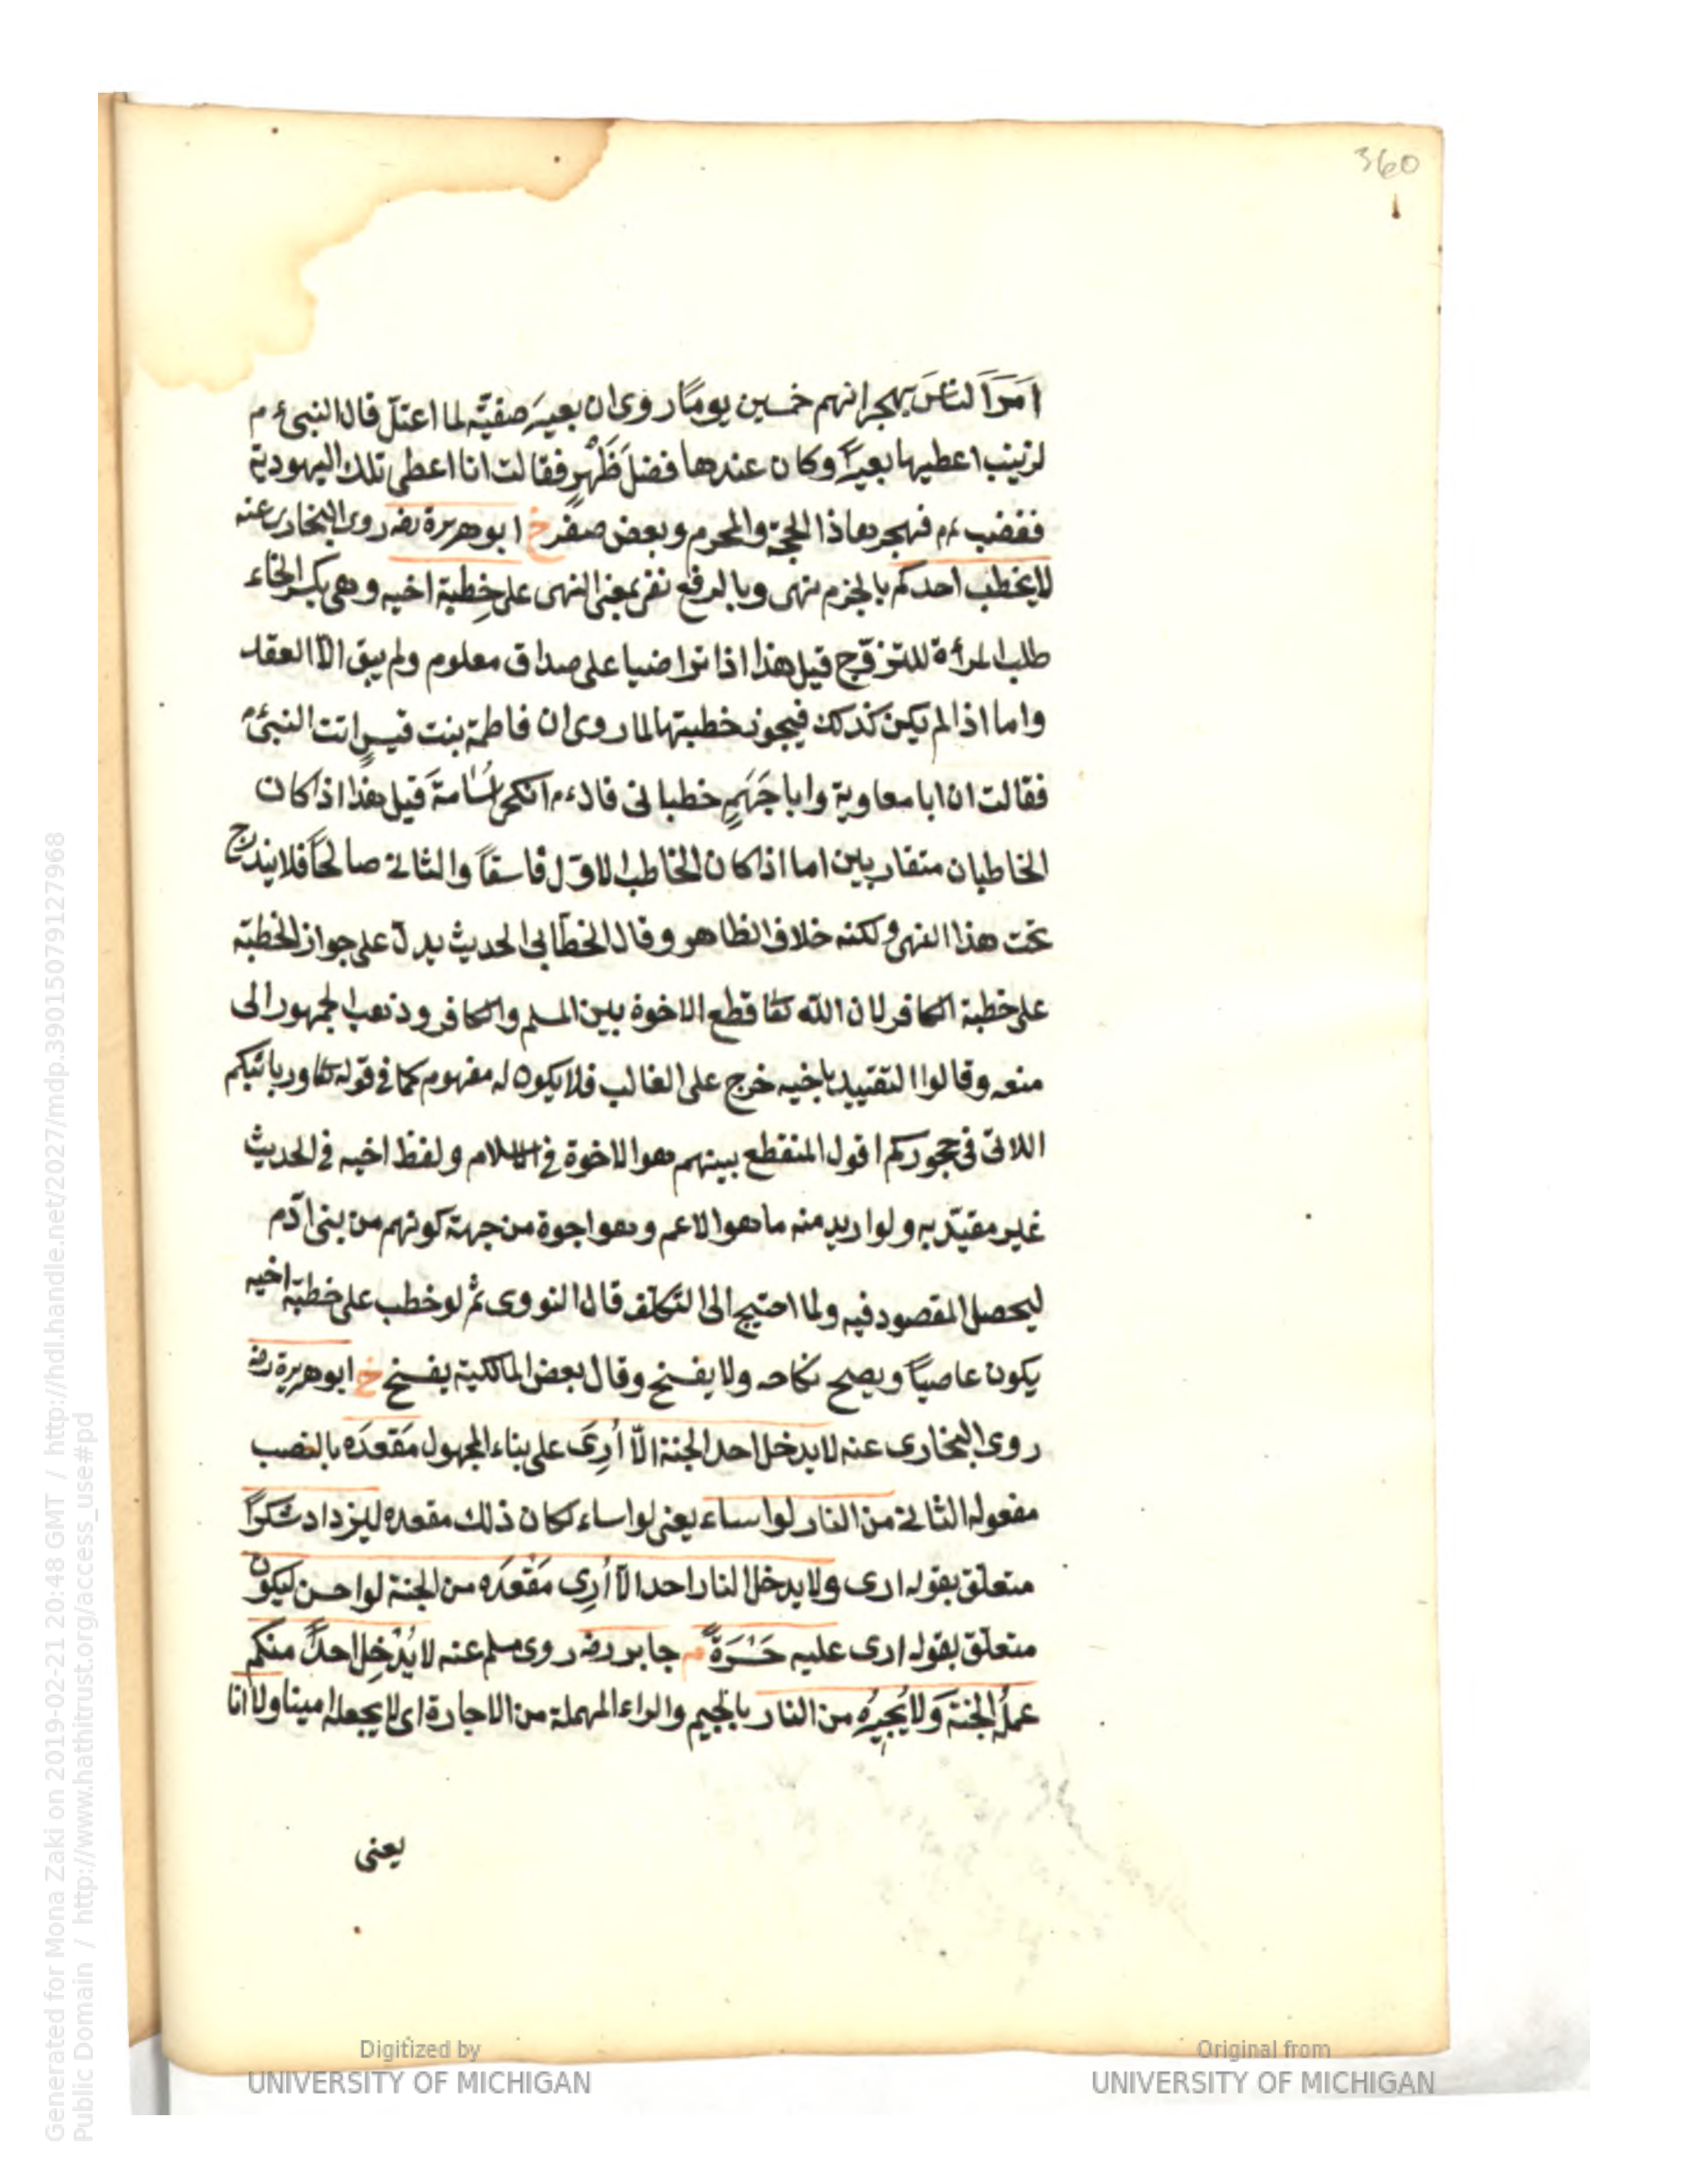 360
امَرَ النَّاسَ بهجرانهم خمسين يومًا روى ان بعيرَ صفيّة لما اعتلّ قال النبىء م
لزينب اعطيها بعيرًا وكان عندها فضلَ ظَهْرٍ فقالت انا اعطى تلك اليهودية
فغضب ءم فهجرها ذا الحجة والمحرم وبعض صفر خ ابو هريرة رضه روى البخارى عنه
لا يخطب احدكم بالجزم نهى وبالرفع نفى بمعنى النهى على خِطبة اخيه وهى بكسر الخاء
طلب المرأة للتزوّج قيل هذا اذا تراضيا على صداق معلوم ولم يبق الّا العقد
واما اذا لم يكن كذلك فيجوز خطبتها لما روى ان فاطمة بنت قيسٍ اتت النبىء م
فقالت ان ابا معاوية وابا جَهَمٍ خطبانى قال ءم انكحى اُسَامةَ قيل هذا اذا كان
الخاطبان متقاربين اما اذا كان الخاطب الاوّل فاسقًا والثانى صالحًا فلا يندرج
تحت هذا النهى ولكنه خلاف الظاهر وقال الخطّابى الحديث يدلّ على جواز الخطبة
على خطبة الكافر لان الله تعا قطع الاخوة بين المسلم والكافر وذهب الجمهور الى
منعه وقالوا التقييد باخيه خرج على الغالب فلا يكون له مفهوم كما فى قوله تعا وربائبكم
اللاتى فى حجوركم اقول المنقطع بينهم هو الاخوة فى الاسلام ولفظ اخيه فى الحديث
غير مقيّد به ولو اريد منه ما هو الاعم وهو اخوة من جهة كونهم من بنى آدم
ليحصل المقصود فيه ولما احتيج الى التكلّف قال النووى ثم لو خطب على خطبة اخيه
يكون عاصيًا ويصح نكاحه ولا يفسخ وقال بعض المالكية يفسخ خ ابو هريرة رضه
روى البخارى عنه لا يدخل احد الجنة الّا اُرِىَ على بناء المجهول مَقعدَه بالنصب
مفعوله الثانى من النار لو اساء يعنى لو اساء لكان ذلك مقعده ليزداد شكرًا
متعلّق بقوله ارى ولا يدخل النار احد الّا اُرِى مَقْعَدَه من الجنة لو احسن ليكون
متعلّق بقوله ارى عليه حَسْرَةً م جابر رضه روى مسلم عنه لا يُدْخِل احدًا منكم
عملُه الجنةَ وَلا يُجيرُه من النار بالجيم والراء المهملة من الاجارة اى لا يجعله امينا ولا انا
يعنى
Generated for Mona Zaki on 2019-02-21 20:48 GMT / http://hdl.handle.net/2027/mdp.39015079127968
Public Domain / http://www.hathitrust.org/access_use#pd
Digitized by
UNIVERSITY OF MICHIGAN
Original from
UNIVERSITY OF MICHIGAN